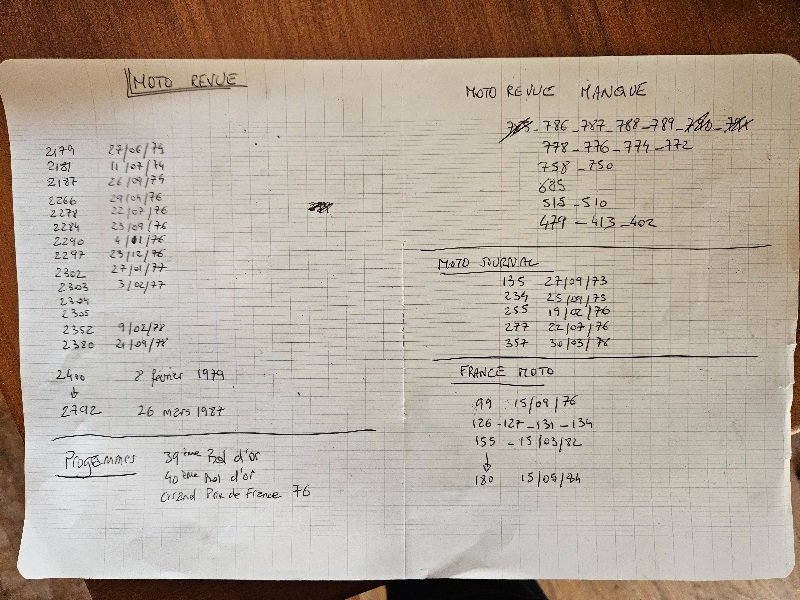 MOTO REVUE
2179 27/06/74
2181 11/07/74
2187 26/09/74
2266 29/04/76
2278 22/07/76
2284 23/09/76
2290 4/11/76
2297 23/12/76
2302 27/01/77
2303 3/02/77
2304
2305
2352 9/02/78
2380 21/09/78
2400 8 février 1979
↓
2792 26 mars 1987
Progammes 39ième Bol d'or
40ième Bol d'or
Grand Prix de France 76
MOTO REVUE MANQUE
786 - 787 - 788 - 789
778 - 776 - 774 - 772
758 - 750
685
515 - 510
479 - 413 - 402
MOTO JOURNAL
135 27/09/73
234 25/09/75
255 19/02/76
277 22/07/76
357 30/03/78
FRANCE MOTO
99 15/09/76
126 - 127 - 131 - 134
155 - 15/03/82
↓
180 15/05/84